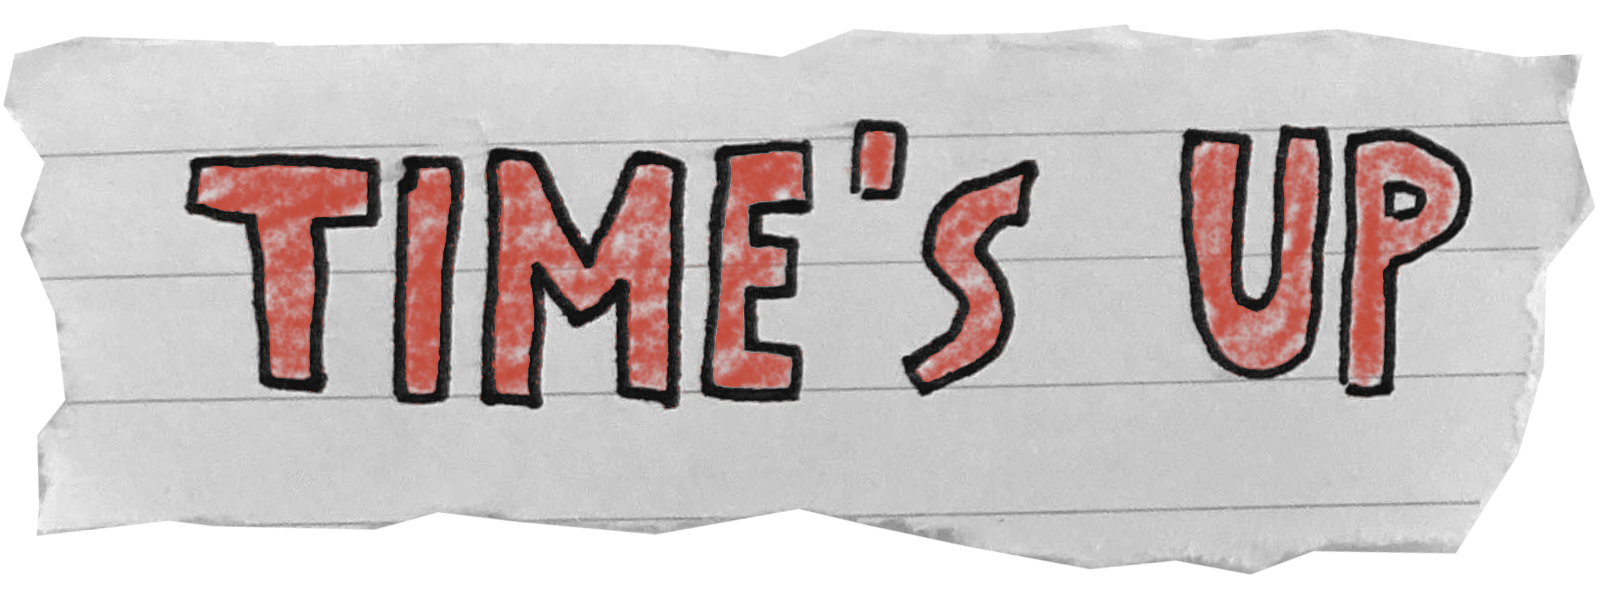 TIME's UP